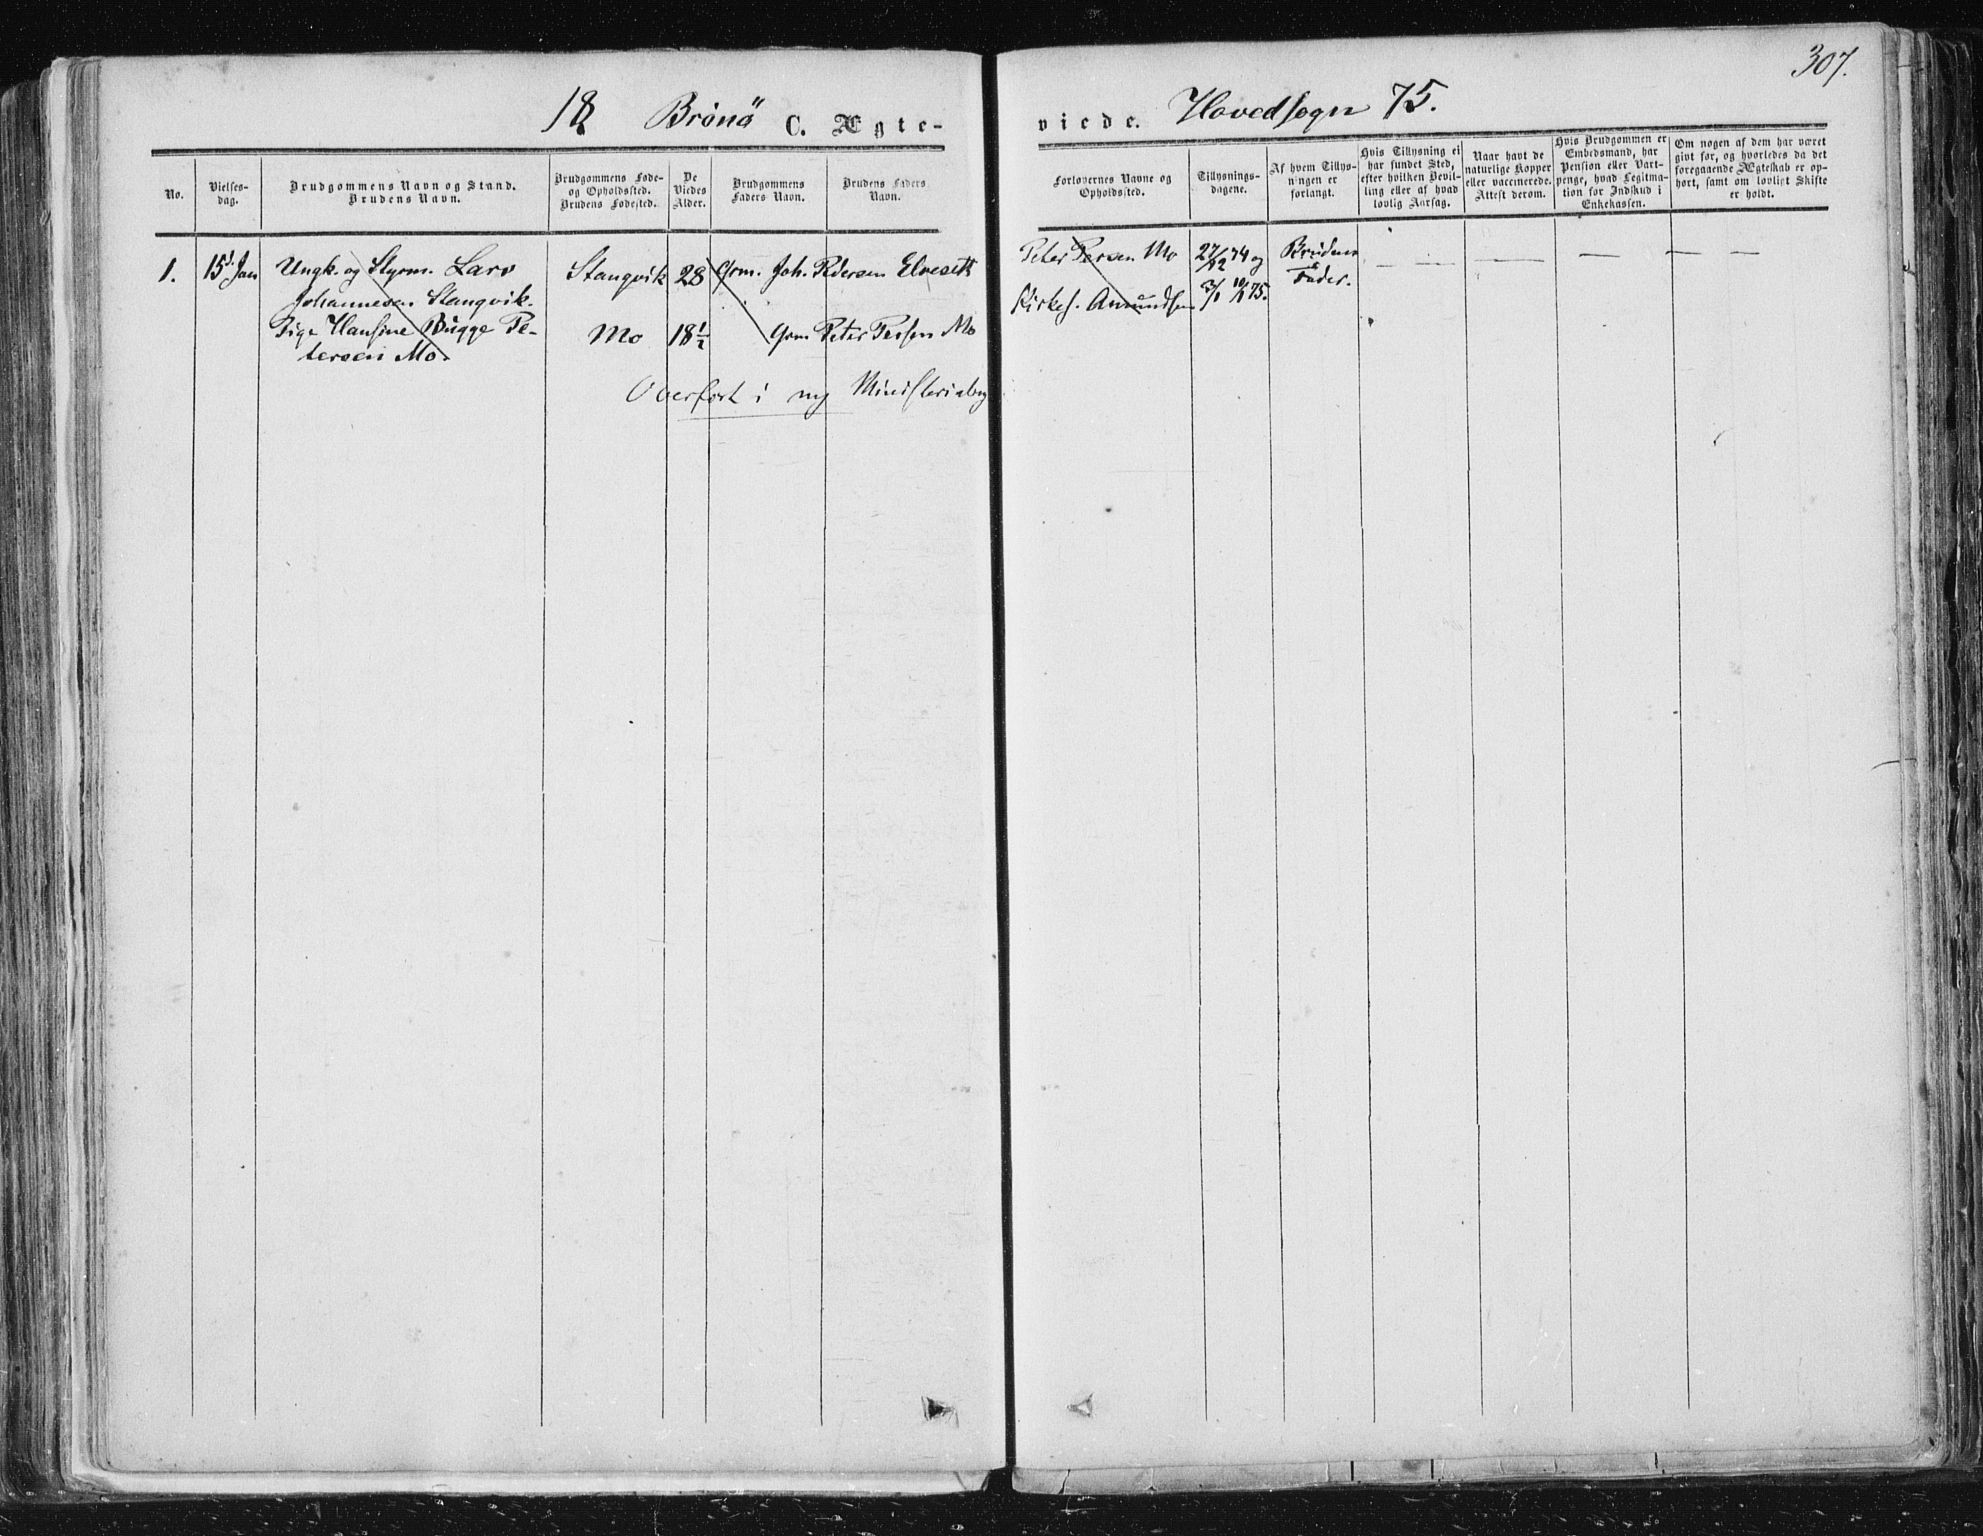 307.
18 Brönö C. Ægte-
viede. Hovedsogn 75.
No.
Vielses-
dag.
Brudgommens Navn og Stand.
Brudens Navn.
Brudgommens Føde-
og Opholdssted.
Brudens Fødested.
De
Viedes
Alder.
Brudgommens
Faders Navn.
Brudens Faders
Navn.
Forlovernes Navne og
Opholdssted.
Tillysnings-
dagene.
Af hvem Tillys-
ningen er
forlangt.
Hvis Tillysning ei
har fundet Sted,
efter hvilken Bevil-
ling eller af hvad
lovlig Aarsag.
Naar havt de
naturlige Kopper
eller vaccinerede.
Attest derom.
Hvis Brudgommen er
Embedsmand, har
Pension eller Vart-
penge, hvad Legitima-
tion for Indskud i
Enkekassen.
Om nogen af dem har været
gift før, og hvorledes da det
foregaaende Ægteskab er op-
hørt, samt om lovligt Skifte
er holdt.
1. 15d. Jan Ungk. og Styrm. Lars Stangvik 28 Grm. Joh. Pedersen Elvesett
Johannesen Stangvik.
Pige Hansine Bugge Pe- Mo 18½ Grm Peter Persen Mo
tersen Mo.
Overført i ny Ministerialbog
Peter Persen Mo 27/12 74 og Brudens — — — — —
Kirkes. Amundsen 3/1 10/1 75. Fader.